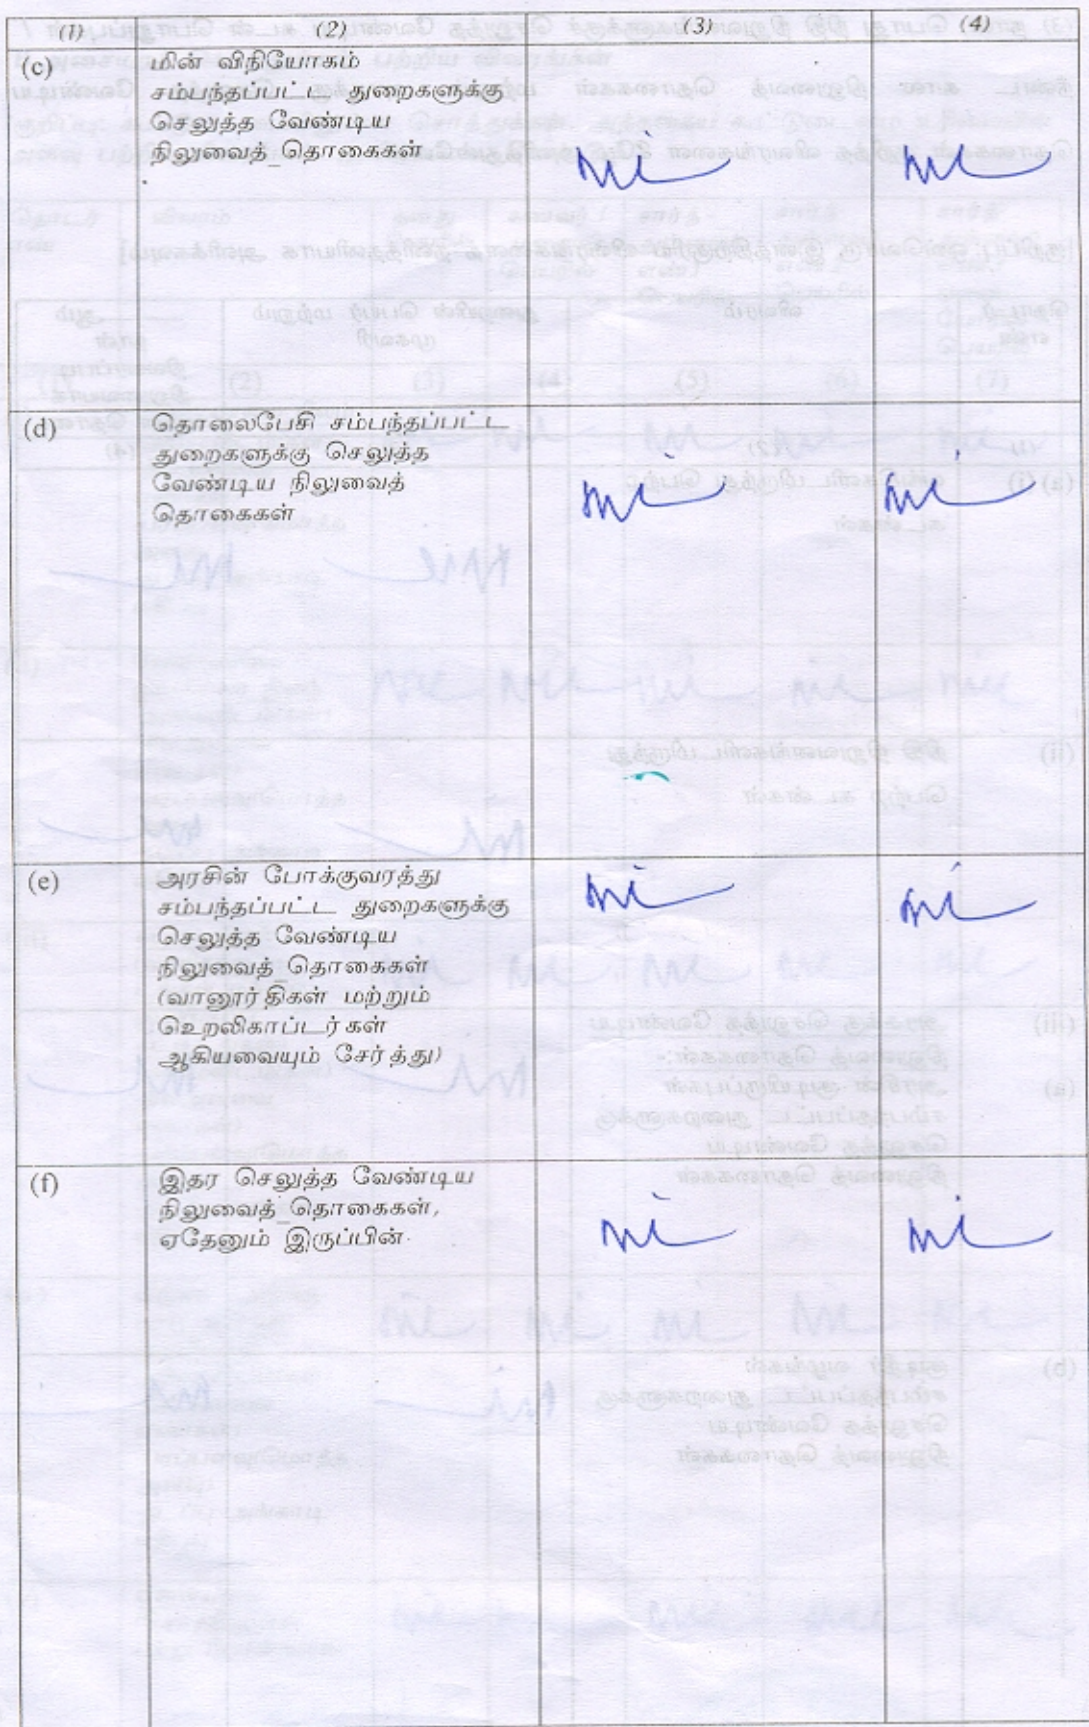 (1) (2) (3) (4)
(c) மின் விநியோகம்
சம்பந்தப்பட்ட துறைகளுக்கு
செலுத்த வேண்டிய
நிலுவைத் தொகைகள் nil nil
(d) தொலைபேசி சம்பந்தப்பட்ட
துறைகளுக்கு செலுத்த
வேண்டிய நிலுவைத் nil nil
தொகைகள்
(e) அரசின் போக்குவரத்து nil nil
சம்பந்தப்பட்ட துறைகளுக்கு
செலுத்த வேண்டிய
நிலுவைத் தொகைகள்
(வானூர்திகள் மற்றும்
உெறலிகாப்டர்கள்
ஆகியவையும் சேர்த்து)
(f) இதர செலுத்த வேண்டிய
நிலுவைத் தொகைகள்,
ஏதேனும் இருப்பின். nil nil